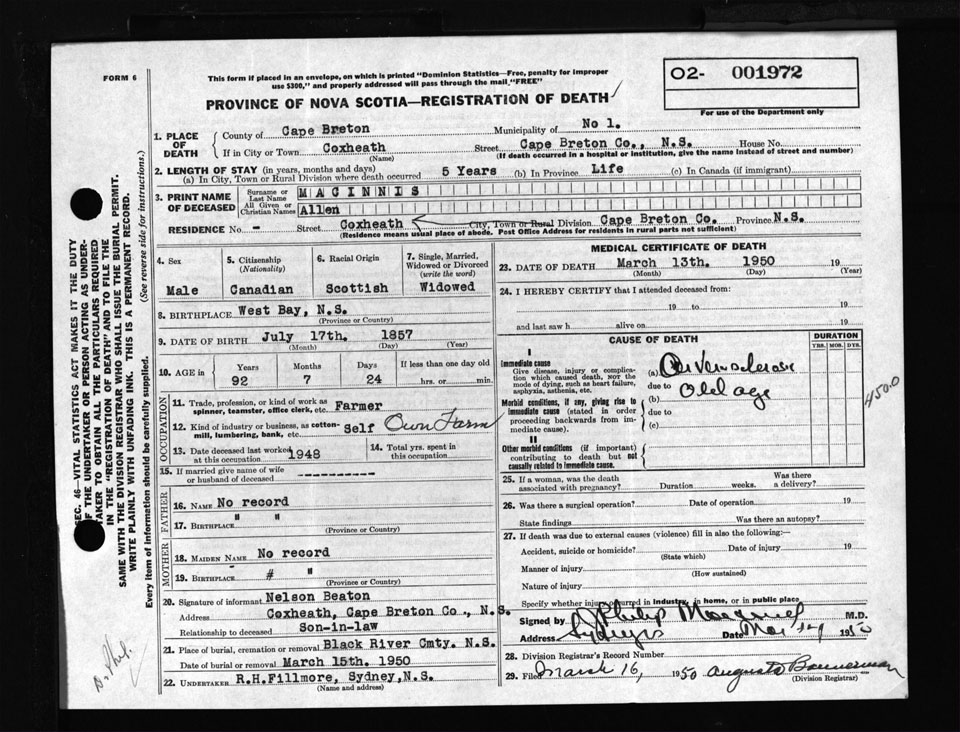 FORM 6
This form if placed in an envelope, on which is printed "Dominion Statistics—Free, penalty for improper
use $300," and properly addressed will pass through the mail "FREE"
PROVINCE OF NOVA SCOTIA—REGISTRATION OF DEATH
O2- 001972
For use of the Department only
1. PLACE OF DEATH
County of Cape Breton Municipality of No 1.
If in City or Town Coxheath Street Cape Breton Co., N.S. House No.
(Name) (If death occurred in a hospital or institution, give the name instead of street and number)
2. LENGTH OF STAY (in years, months and days)
(a) In City, Town or Rural Division where death occurred 5 Years (b) In Province Life (c) In Canada (if immigrant)
3. PRINT NAME OF DECEASED
Surname or Last Name MACINNIS
All Given or Christian Names Allen
RESIDENCE No. - Street Coxheath City, Town or Rural Division Cape Breton Co. Province N.S.
(Residence means usual place of abode. Post Office Address for residents in rural parts not sufficient)
4. Sex
Male
5. Citizenship
(Nationality)
Canadian
6. Racial Origin
Scottish
7. Single, Married,
Widowed or Divorced
(write the word)
Widowed
8. BIRTHPLACE West Bay, N.S.
(Province or Country)
9. DATE OF BIRTH July 17th. 1857
(Month) (Day) (Year)
10. AGE in
Years Months Days If less than one day old
92 7 24 hrs. or min.
OCCUPATION
11. Trade, profession, or kind of work as
spinner, teamster, office clerk, etc. Farmer
12. Kind of industry or business, as cotton-
mill, lumbering, bank, etc. Self Own Farm
13. Date deceased last worked
at this occupation 1948
14. Total yrs. spent in
this occupation
15. If married give name of wife
or husband of deceased ----------
FATHER
16. NAME No record
17. BIRTHPLACE " "
(Province or Country)
MOTHER
18. MAIDEN NAME No record
19. BIRTHPLACE # "
(Province or Country)
20. Signature of informant Nelson Beaton
Address Coxheath, Cape Breton Co., N.S.
Relationship to deceased Son-in-law
21. Place of burial, cremation or removal Black River Cmty. N.S.
Date of burial or removal March 15th. 1950
22. UNDERTAKER R.H.Fillmore, Sydney,N.S.
(Name and address)
MEDICAL CERTIFICATE OF DEATH
23. DATE OF DEATH March 13th. 1950 19
(Month) (Day) (Year)
24. I HEREBY CERTIFY that I attended deceased from:
19 to 19
and last saw h alive on 19
CAUSE OF DEATH
DURATION
YRS. MOS. DYS.
I
Immediate cause
Give disease, injury or complica-
tion which caused death, NOT the
mode of dying, such as heart failure,
asphyxia, asthenia, etc.
(a)
due to
Morbid conditions, if any, giving rise to
immediate cause (stated in order
proceeding backwards from im-
mediate cause).
(b) Old age
due to
(c)
II
Other morbid conditions (if important)
contributing to death but not
causally related to immediate cause.
4500
25. If a woman, was the death
associated with pregnancy? Duration weeks. Was there
a delivery?
26. Was there a surgical operation? Date of operation 19
State findings Was there an autopsy?
27. If death was due to external causes (violence) fill in also the following:—
Accident, suicide or homicide? Date of injury 19
(State which)
Manner of injury
(How sustained)
Nature of injury
Specify whether injury occurred in industry, in home, or in public place
Signed by Philip M.D.
Address Date 1950
28. Division Registrar's Record Number
29. Filed March 16, 1950 Augusta Bannerman
(Division Registrar)
SEC. 46—VITAL STATISTICS ACT MAKES IT THE DUTY
OF THE UNDERTAKER OR PERSON ACTING AS UNDER-
TAKER TO OBTAIN ALL THE PARTICULARS REQUIRED
IN THE "REGISTRATION OF DEATH" AND TO FILE THE
SAME WITH THE DIVISION REGISTRAR WHO SHALL ISSUE THE BURIAL PERMIT.
WRITE PLAINLY WITH UNFADING INK. THIS IS A PERMANENT RECORD.
Every item of information should be carefully supplied. (See reverse side for instructions.)